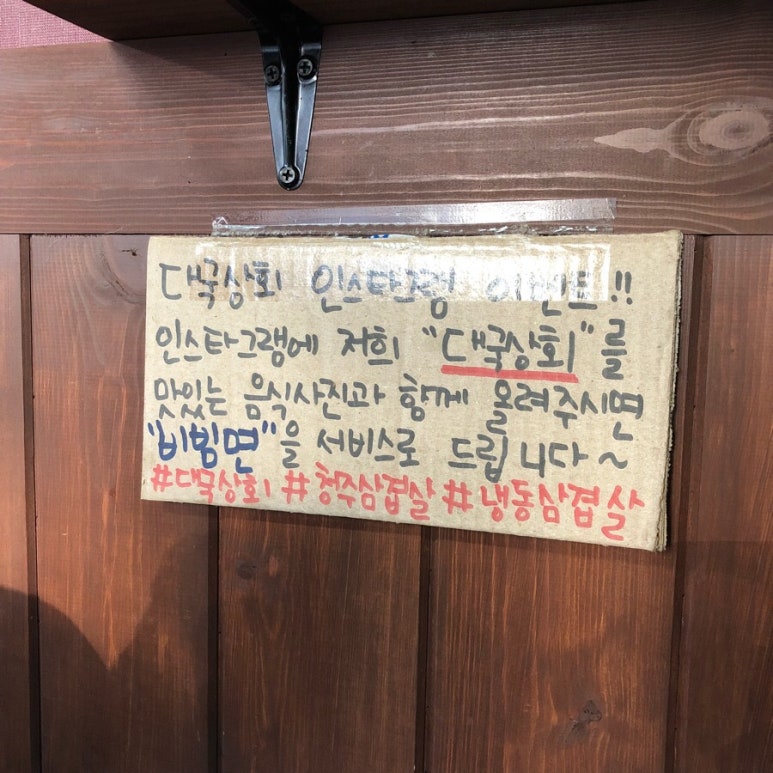 대국상회 인스타그램 이벤트!!
인스타그램에 저희 "대국상회"를
맛있는 음식사진과 함께 올려주시면
"비빔면"을 서비스로 드립니다~
#대국상회 #청주삼겹살 #냉동삼겹살